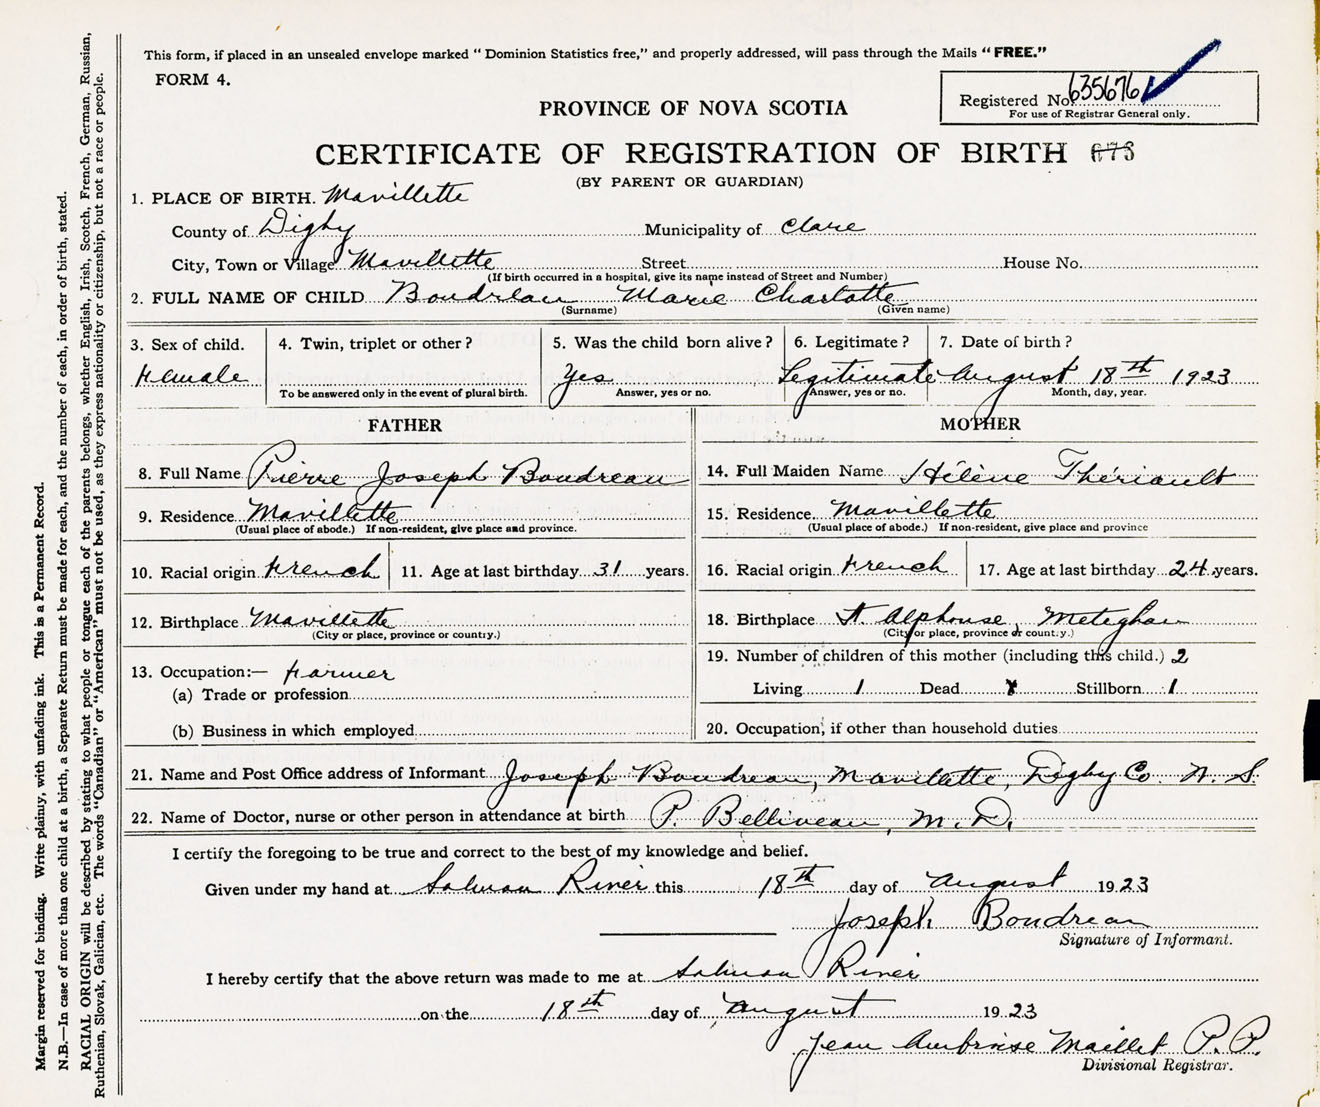 This form, if placed in an unsealed envelope marked "Dominion Statistics free," and properly addressed, will pass through the Mails "FREE."
FORM 4.
Registered No. 635676
For use of Registrar General only.
PROVINCE OF NOVA SCOTIA
CERTIFICATE OF REGISTRATION OF BIRTH 673
(BY PARENT OR GUARDIAN)
1. PLACE OF BIRTH. Mavillette
County of Digby Municipality of Clare
City, Town or Village Mavillette Street House No.
(If birth occurred in a hospital, give its name instead of Street and Number)
2. FULL NAME OF CHILD Boudreau Marie Charlotte
(Surname) (Given name)
3. Sex of child. 4. Twin, triplet or other? 5. Was the child born alive? 6. Legitimate? 7. Date of birth?
Female Yes Legitimate August 18th 1923
To be answered only in the event of plural birth. Answer, yes or no. Answer, yes or no. Month, day, year.
FATHER MOTHER
8. Full Name Pierre Joseph Boudreau 14. Full Maiden Name Hélène Thériault
9. Residence Mavillette 15. Residence. Mavillette
(Usual place of abode.) If non-resident, give place and province. (Usual place of abode.) If non-resident, give place and province
10. Racial origin French 11. Age at last birthday 31 years. 16. Racial origin French 17. Age at last birthday 24 years.
12. Birthplace Mavillette 18. Birthplace St. Alphonse, Meteghan
(City or place, province or country.) (City or place, province or country.)
13. Occupation:— Farmer 19. Number of children of this mother (including this child.) 2
(a) Trade or profession Living 1 Dead Stillborn 1
(b) Business in which employed 20. Occupation, if other than household duties
21. Name and Post Office address of Informant Joseph Boudreau, Mavillette, Digby Co. N. S.
22. Name of Doctor, nurse or other person in attendance at birth P. Belliveau, M.D.
I certify the foregoing to be true and correct to the best of my knowledge and belief.
Given under my hand at Salmon River this 18th day of August 1923
Joseph Boudreau
Signature of Informant.
I hereby certify that the above return was made to me at Salmon River
on the 18th day of August 1923
Jean Ambroise Maillet P.P.
Divisional Registrar.
Margin reserved for binding. Write plainly, with unfading ink. This is a Permanent Record.
N.B.—In case of more than one child at a birth, a Separate Return must be made for each, and the number of each, in order of birth, stated.
RACIAL ORIGIN will be described by stating to what people or tongue each of the parents belongs, whether English, Irish, Scotch, French, German, Russian,
Ruthenian, Slovak, Galician, etc. The words "Canadian" or "American" must not be used, as they express nationality or citizenship, but not a race or people.